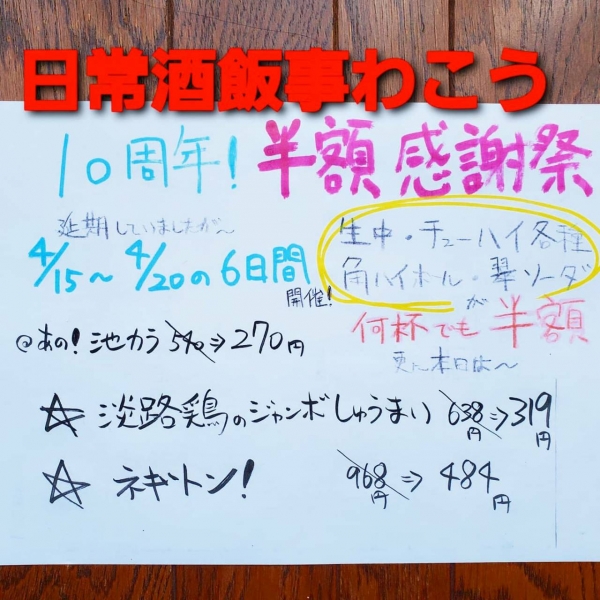 日常酒飯事わこう
10周年! 半額感謝祭
延期していましたが〜
4/15〜4/20の6日間
開催!
生中・チューハイ各種
角ハイボール・翠ソーダ
が
何杯でも半額
更に本日は〜
@あの!池カラ 540⇒270円
☆ 淡路鶏のジャンボしゅうまい 638円⇒319円
☆ ネギトン! 968円⇒484円